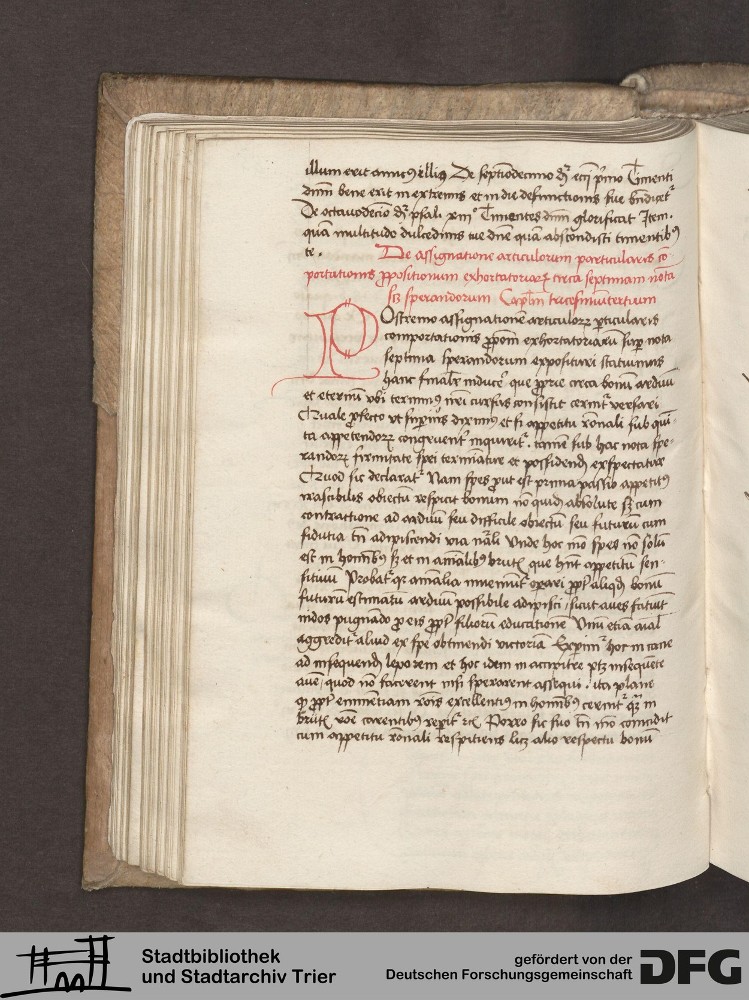 illum erit amicus illius De septiodecimo dr eccj primo Timenti
dnm bene erit in extremis et in die defunctionis sue bndicet
De octauodecio dr psal xiiii Timentes dnm glorificat Item
quam multitudo dulcedinis tue dne quam abscondisti timentibus
te. De assignatione articulorum particularis co
portationis propositionum exhortatoriarum circa septimam nota
sperandorum Caplm tricesimutertium
Postremo assignatione articulorum particularis
comportationis exhortatoriaru super nota
septima sperandorum exposituri statuimus
hanc inducere que proprie circa bonu arduu
et eternu vbi terminus nri cursus consistit cernit versari
Quale profecto vt superius diximus et si appetitu ronali sub
ta appetendorum congruenter inquirit. tamen sub hac nota spe-
randorum firmitate spei terminature et possidend exspectatur
Quod sic declarat Nam spes prout est prima passio appetitus
irascibilis obiectu respicit bonum no quid absolute sz cum
contractione ad arduu seu difficile obiectu seu futuru cum
fidutia tn adipiscendi via nrali Unde hoc mo spes no solu
est in hominibus sz et in animalibus brutis que hnt appetitu sen-
sitiuu Probat qr animalia inueniunt operari aliqd bonu
futuru estimatu arduu possibile adipisci / sicut aues faciut
nidos pugnado pro eis filioru educatione Unu etia aial
aggredit aliud ex spe obtinendi victoria Experimur hoc in cane
ad insequend leporem et hoc idem in accipitre insequete
aue, quod no facerent nisi sperarent assequi. ita plane
eminentiam rois excellentius in hominibus cernit in
brutis roe carentibus reperit etc Porro sic suo tn mo coincidit
cum appetitu ronali respitiens alio respectu bonu
Stadtbibliothek
und Stadtarchiv Trier
gefördert von der
Deutschen Forschungsgemeinschaft
DFG